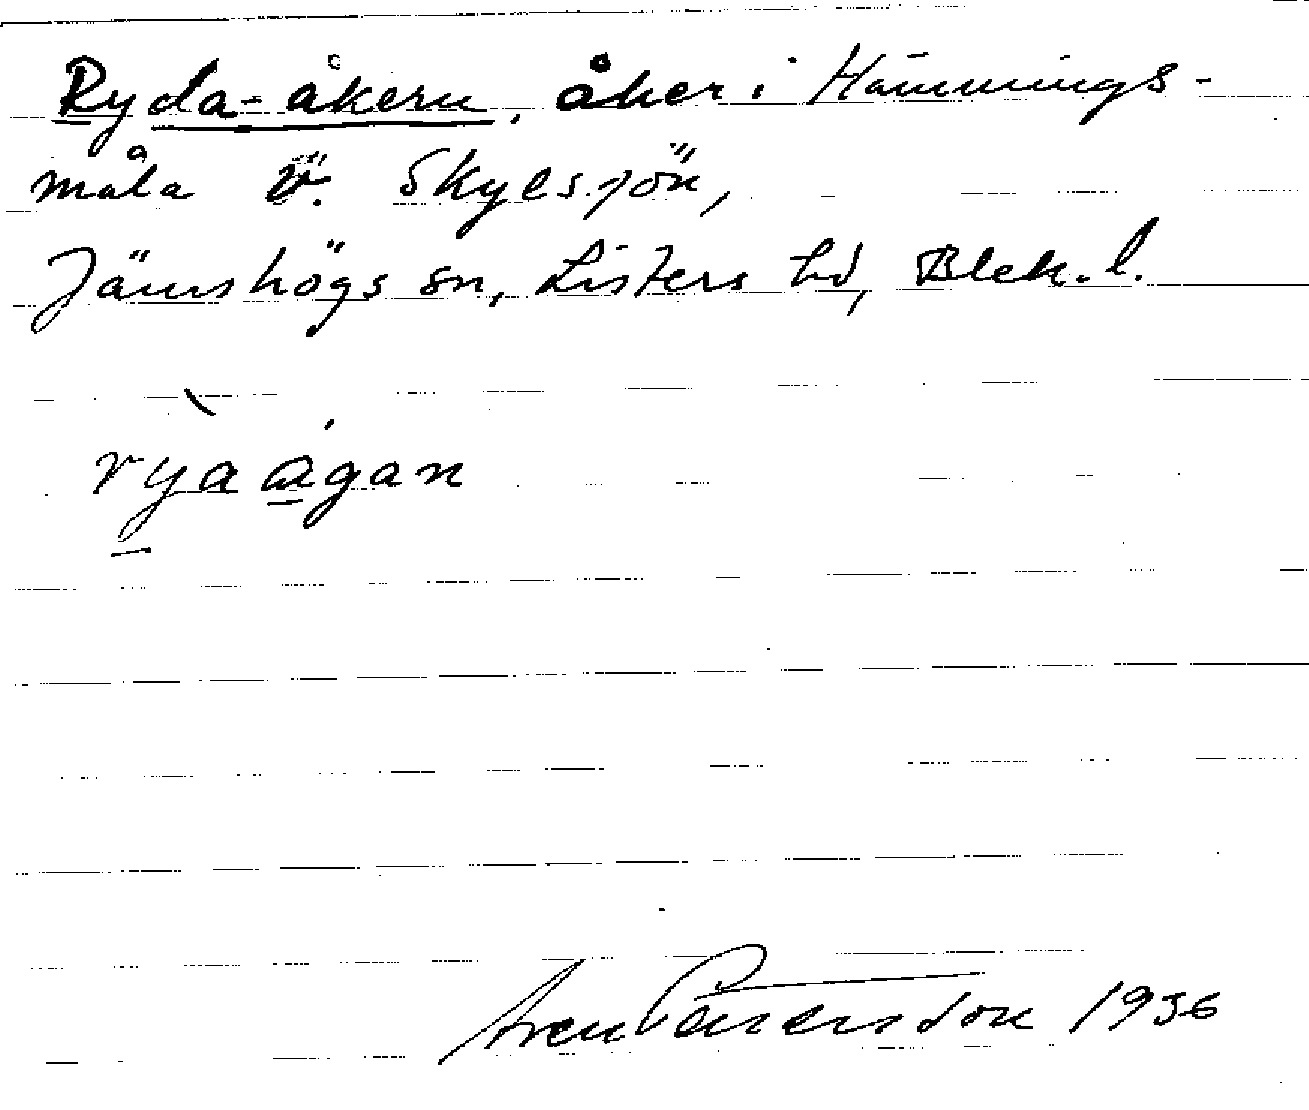 Ryda-åkern, åker i Hämmings-
måla Ö. Skyesjön,
Jämshögs sn, Listers hd, Blek. l.
ryaågan
1936